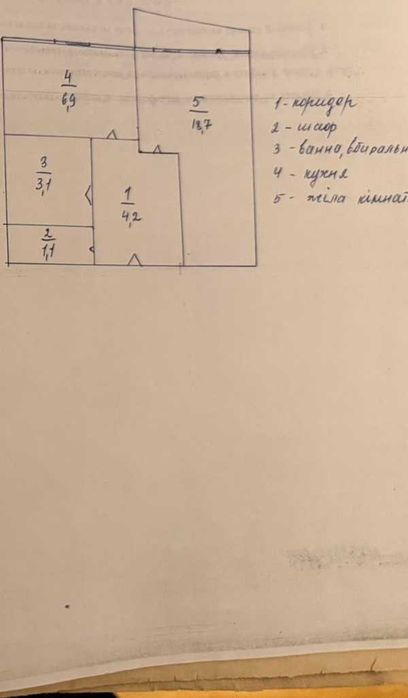 4
6,9
5
18,7
3
3,1
1
4,2
2
1,1
1 - коридор
2 - шкаф
3 - ванна, вбиральн
4 - кухня
5 - жіла кімнат